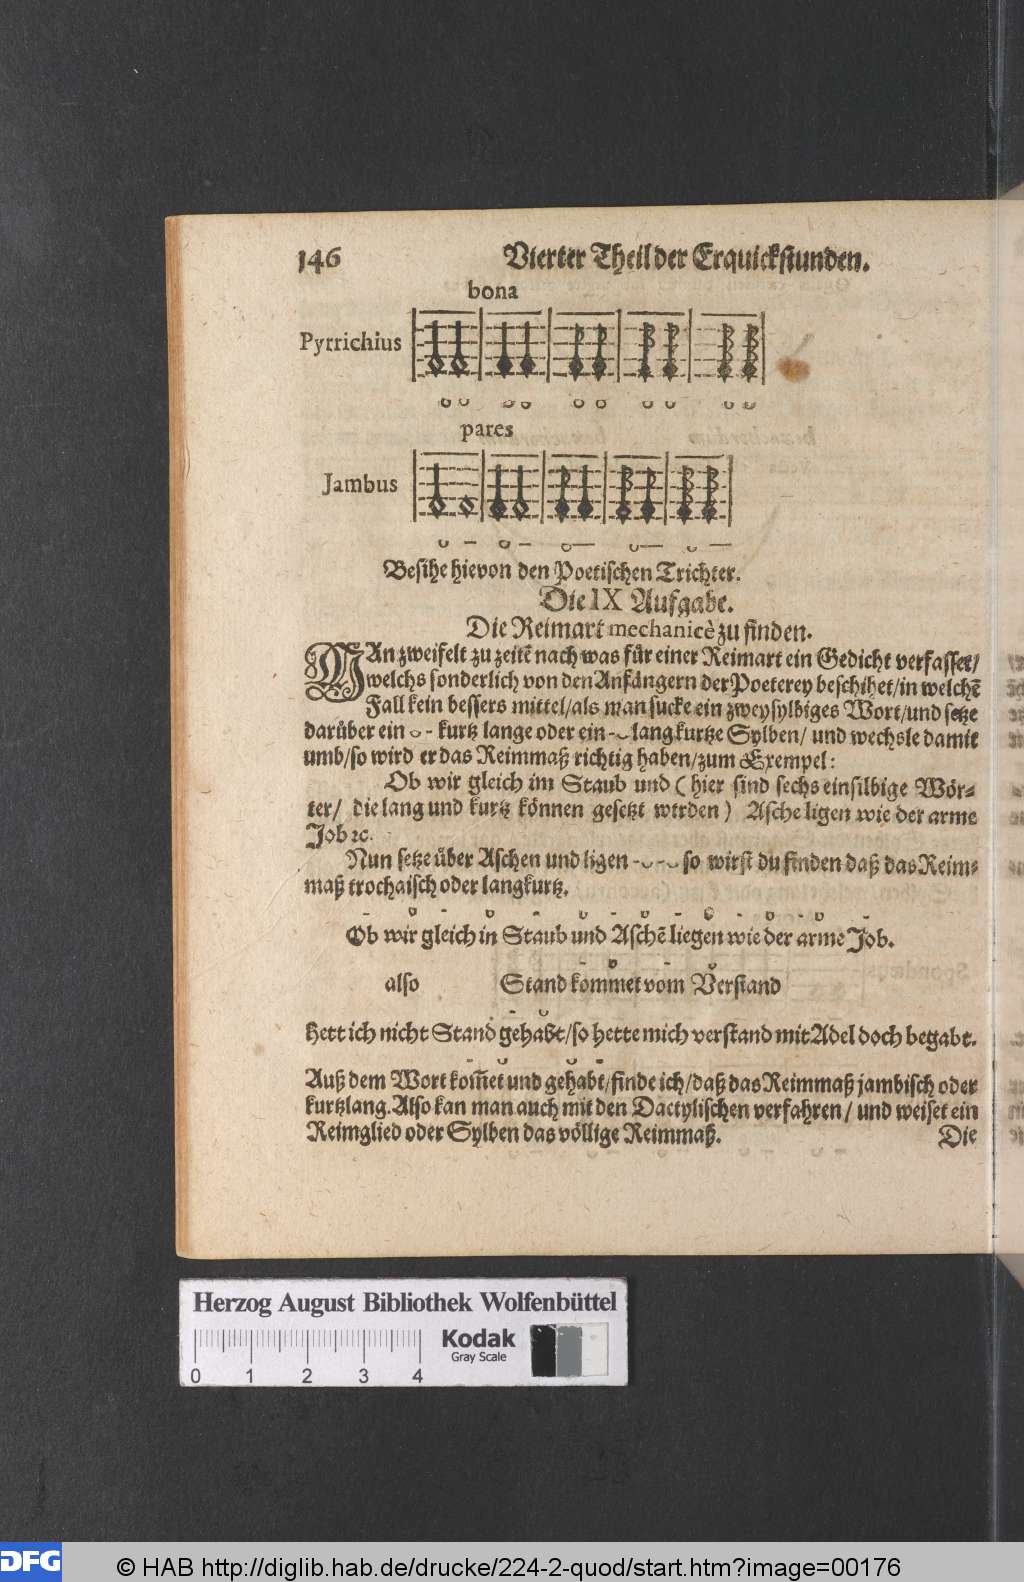 146 Vierter Theil der Erquickstunden.
bona
Pyrrichius
pares
Jambus
Besihe hievon den Poetischen Trichter.
Die IX Aufgabe.
Die Reimart mechanicè zu finden.
MAn zweifelt zu zeitē nach was für einer Reimart ein Gedicht verfasset/
welchs sonderlich von den Anfängern der Poeterey beschihet/in welchē
Fall kein bessers mittel/als man sucke ein zweysylbiges Wort/und setze
darüber ein ᴗ - kurtz lange oder ein -ᴗ lang kurtze Sylben/ und wechsle damit
umb/so wird er das Reimmaß richtig haben/zum Exempel:
Ob wir gleich im Staub und (hier sind sechs einsilbige Wör-
ter/ die lang und kurtz können gesetzt werden) Asche ligen wie der arme
Job ꝛc.
Nun setze über Aschen und ligen -ᴗ-ᴗ so wirst du finden daß das Reim-
maß trochaisch oder langkurtz.
Ob wir gleich in Staub und Aschē liegen wie der arme Job.
also Stand kömmet vom Verstand
Hett ich nicht Stand gehabt/so hette mich verstand mit Adel doch begabt.
Auß dem Wort kom̄et und gehabt/finde ich/daß das Reimmaß jambisch oder
kurtzlang. Also kan man auch mit den Dactylischen verfahren/ und weiset ein
Reimglied oder Sylben das völlige Reimmaß.
Die
Herzog August Bibliothek Wolfenbüttel
0 1 2 3 4
Kodak
Gray Scale
DFG © HAB http://diglib.hab.de/drucke/224-2-quod/start.htm?image=00176